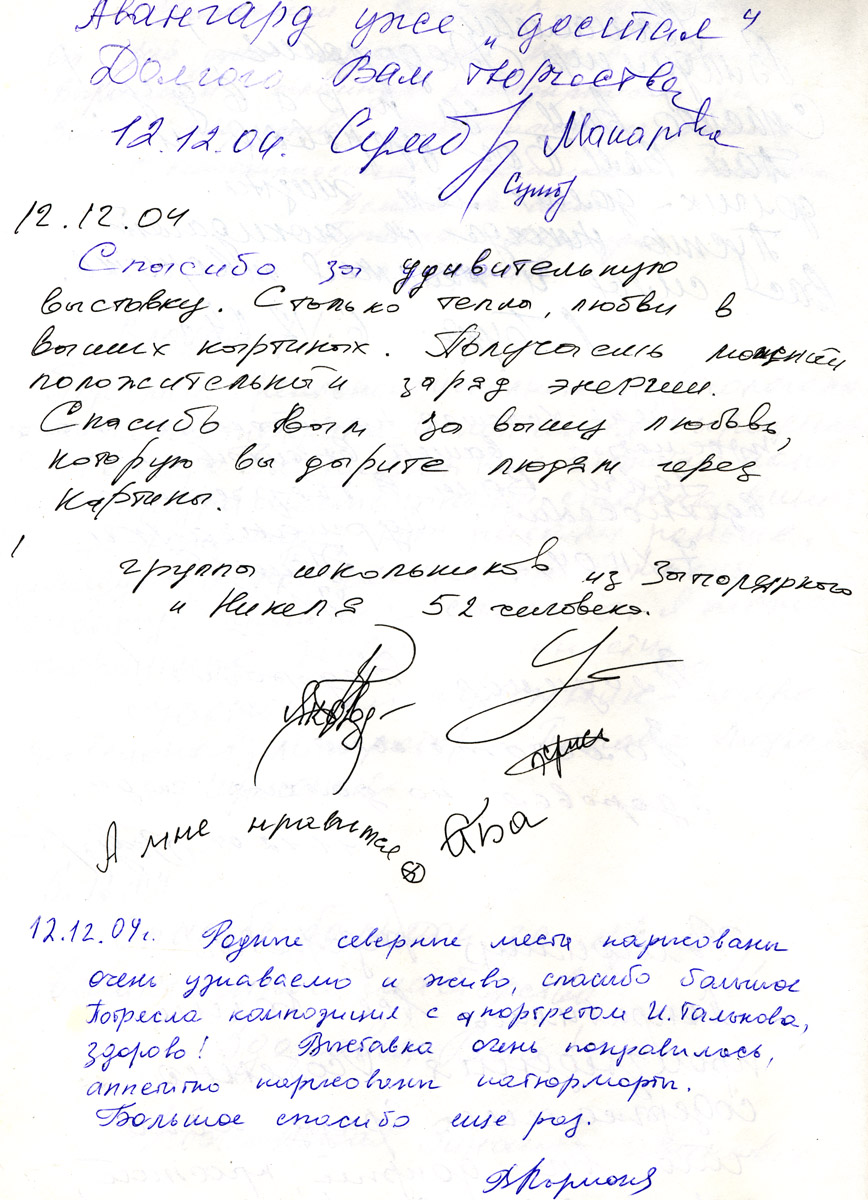 Авангард уже „достал“
Долгого Вам творчества
12.12.04.
12.12.04
Спасибо за удивительную
выставку. Столько тепла, любви в
ваших картинах. Получаешь мощный
положительный заряд энергии.
Спасибо Вам за вашу любовь,
которую вы дарите людям через
картины.
группа школьников из Заполярного
и Никеля 52 человека.
А мне нравится
12.12.04г. Родные северные места нарисованы
очень узнаваемо и живо, спасибо большое
Потрясла композиция с портретом И. Талькова,
здорово! Выставка очень понравилась,
аппетитно нарисованы натюрморты.
Большое спасибо еще раз.